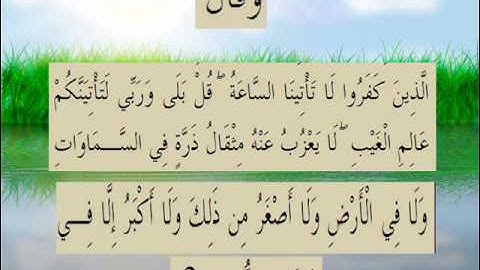 وَقَالَ
الَّذِينَ كَفَرُوا لَا تَأْتِينَا السَّاعَةُ ۖ قُلْ بَلَى وَرَبِّي لَتَأْتِيَنَّكُمْ
عَالِمِ الْغَيْبِ ۖ لَا يَعْزُبُ عَنْهُ مِثْقَالُ ذَرَّةٍ فِي السَّمَاوَاتِ
وَلَا فِي الْأَرْضِ وَلَا أَصْغَرُ مِن ذَلِكَ وَلَا أَكْبَرُ إِلَّا فِي